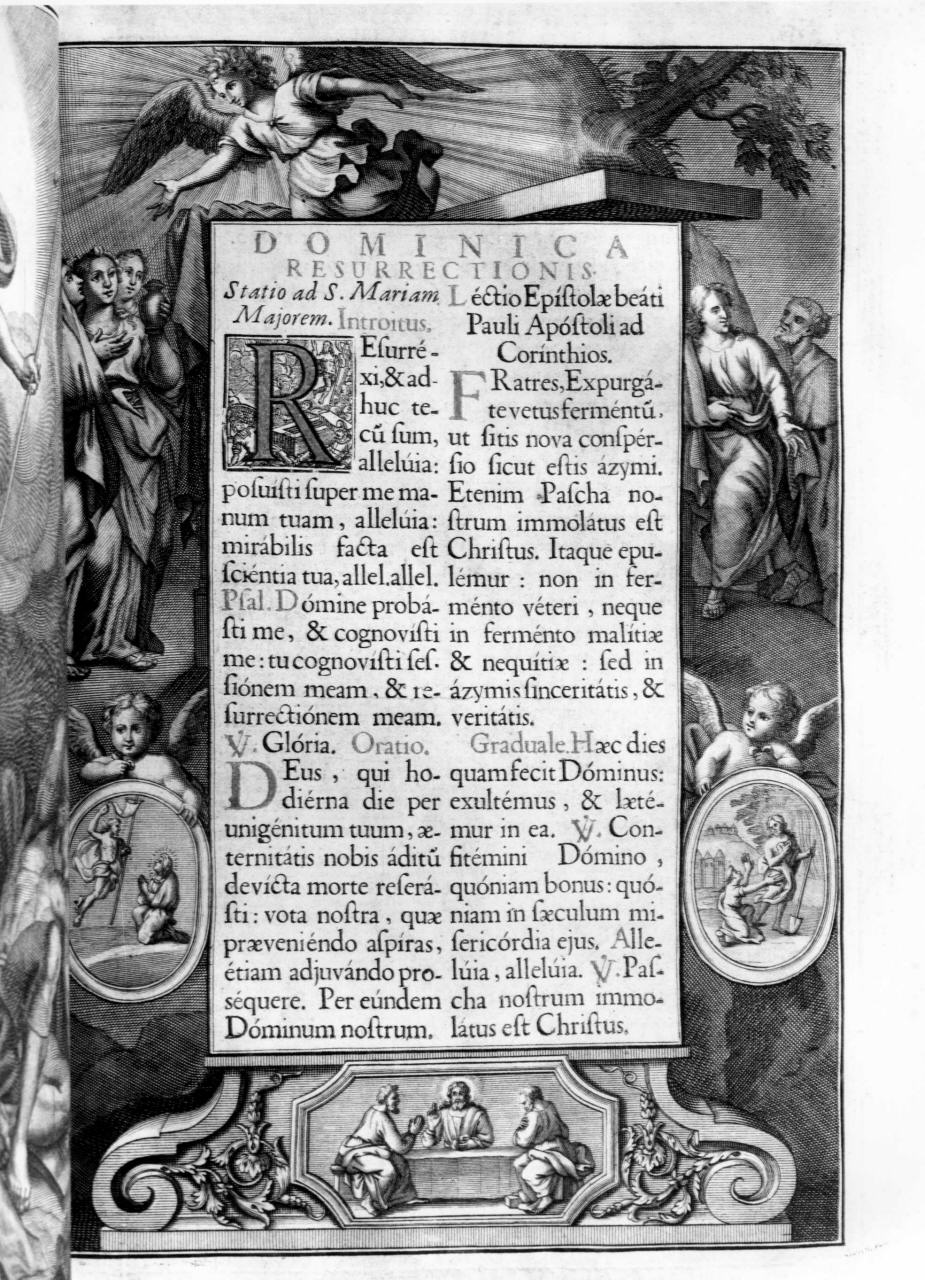 DOMINICA
RESURRECTIONIS.
Statio ad S. Mariam
Majorem. Introitus.
REſurré-
xi, & ad-
huc te-
cũ ſum,
allelúia:
poſuiſti ſuper me ma-
num tuam, allelúia:
mirábilis facta eſt
ſciéntia tua, allel. allel.
Pſal. Dómine probá-
ſti me, & cognovíſti
me: tu cognovíſti ſeſ-
ſiónem meam, & re-
ſurrectiónem meam.
℣. Glória. Oratio.
DEus, qui ho-
diérna die per
unigénitum tuum, æ-
ternitátis nobis áditũ
devícta morte reſerá-
ſti: vota noſtra, quæ
præveniéndo aſpíras,
étiam adjuvándo pro-
séquere. Per eúndem
Dóminum noſtrum.
Léctio Epíſtolæ beáti
Pauli Apóſtoli ad
Corínthios.
FRatres, Expurgá-
te vetus ferméntũ,
ut ſitis nova conſpér-
ſio ſicut eſtis ázymi.
Etenim Paſcha no-
ſtrum immolátus eſt
Chriſtus. Itaque epu-
lémur: non in fer-
ménto véteri, neque
in ferménto malítiæ
& nequítiæ: ſed in
ázymis ſinceritátis, &
veritátis.
Graduale. Hæc dies
quam fecit Dóminus:
exultémus, & læté-
mur in ea. ℣. Con-
fitémini Dómino,
quóniam bonus: quó-
niam in ſæculum mi-
ſericórdia ejus. Alle-
lúia, allelúia. ℣. Paſ-
cha noſtrum immo-
látus eſt Chriſtus.